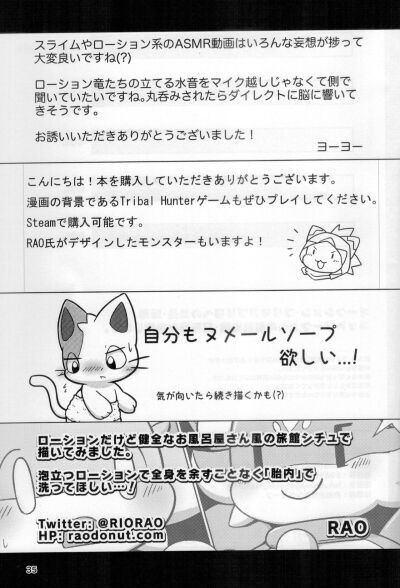 スライムやローション系のASMR動画はいろんな妄想が捗って
大変良いですね(?)
ローション竜たちの立てる水音をマイク越しじゃなくて側で
聞いていたいですね。丸呑みされたらダイレクトに脳に響いて
きそうです。
お誘いいただきありがとうございました!
ヨーヨー
こんにちは!本を購入していただきありがとうございます。
漫画の背景であるTribal Hunterゲームもぜひプレイしてください。
Steamで購入可能です。
RAO氏がデザインしたモンスターもいますよ!
自分もヌメールソープ
欲しい...!
気が向いたら続き描くかも(?)
ローションだけど健全なお風呂屋さん風の旅館シチュで
描いてみました。
泡立つローションで全身を余すことなく「胎内」で
洗ってほしい…!
Twitter: @RIORAO
HP: raodonut.com
RAO
35